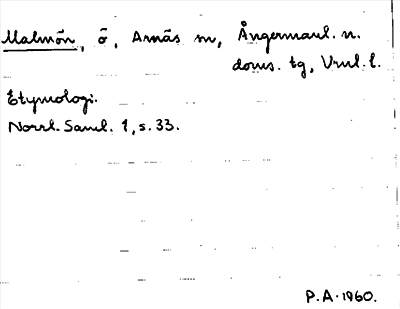 Malmön, ö, Arnäs sn, Ångermanl. n.
doms. tg, Vnrl. l.
Etymologi.
Norrl. Saml. 1, s. 33.
P.A. 1960.